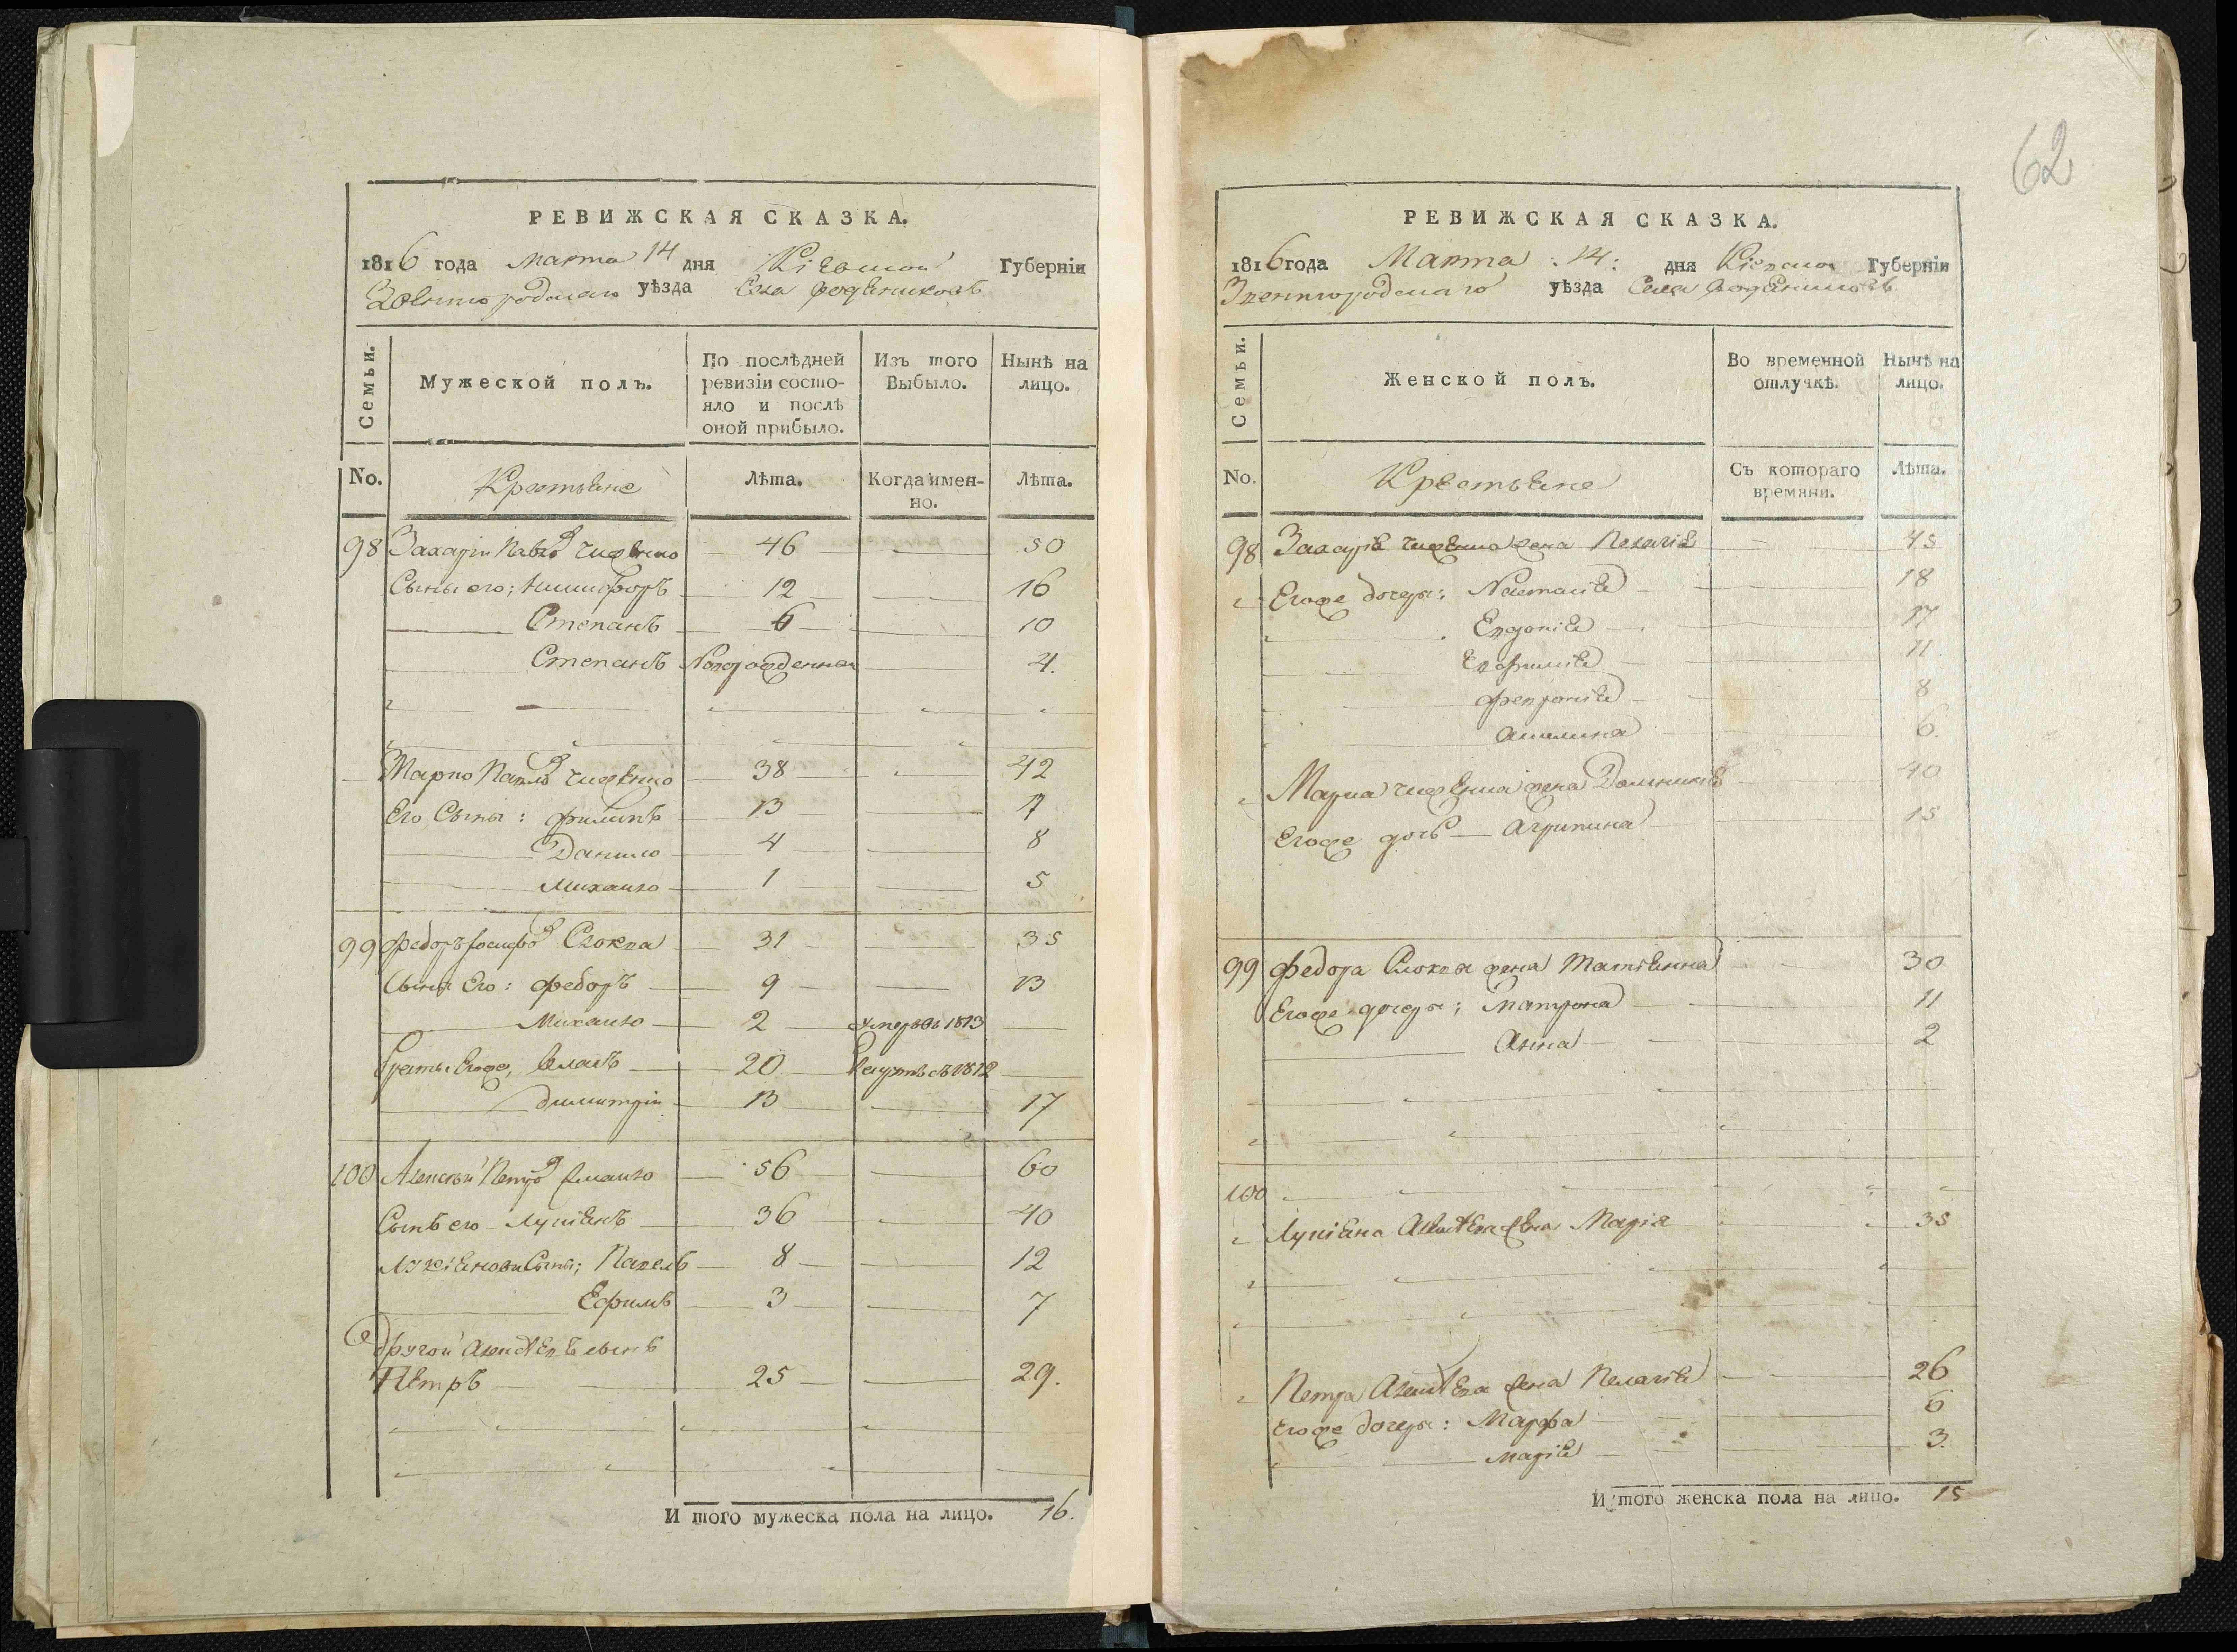 РЕВИЖСКАЯ СКАЗКА.
1816 года Марта 14 дня Кіевской Губерніи
Звенигородскаго уѣзда Села
Семьи.
Мужеской полъ.
По послѣдней ревизіи состояло и послѣ оной прибыло.
Изъ того Выбыло.
Нынѣ на лицо.
No.
Крестьяне
Лѣта.
Когда имен-но.
Лѣта.
98 Захарій Павловъ 46 50
Сыны его; Никифоръ 12 16
Степанъ 6 10
Степанъ Новорожденный 4.
Марко Павловъ 38 42
Его Сыны: Филипъ 13 17
Данило 4 8
Михайло 1 5
99 Федоръ Іосифовъ 31 35
Сыны Его: Федоръ 9 13
Михайло 2 умеръ въ 1813
Браты Егоже, Власъ 20 1812
Димитрій 13 17
100 Алексѣй Петровъ 56 60
Сынъ его Лукіянъ 36 40
Лукіяновы Сыны; Павелъ 8 12
Ефимъ 3 7
Другой Алексѣевъ сынъ
Петръ 25 29.
И того мужеска пола на лицо. 16.
62
РЕВИЖСКАЯ СКАЗКА.
1816 года Марта 14 дня Кіевской Губерніи
Звенигородскаго уѣзда Села
Семьи.
Женской полъ.
Во временной отлучкѣ.
Нынѣ на лицо.
No.
Крестьяне
Съ котораго времяни.
Лѣта.
98 Захарія жена Пелагія 45
Егоже дочери: Настасія 18
Евдокія 17
Евфимія 11
Февронія 8
Акилина 6.
Марка жена Домникія 40
Егоже дочь Агрипина 15
99 Федора жена Татіянна 30
Егоже дочери; Матрона 11
Анна 2
100
Лукіяна Алексѣева жена Марія 35
Петра Алексѣева жена Пелагія 26
Егоже дочери: Марфа 6
Марія 3.
И того женска пола на лицо. 15